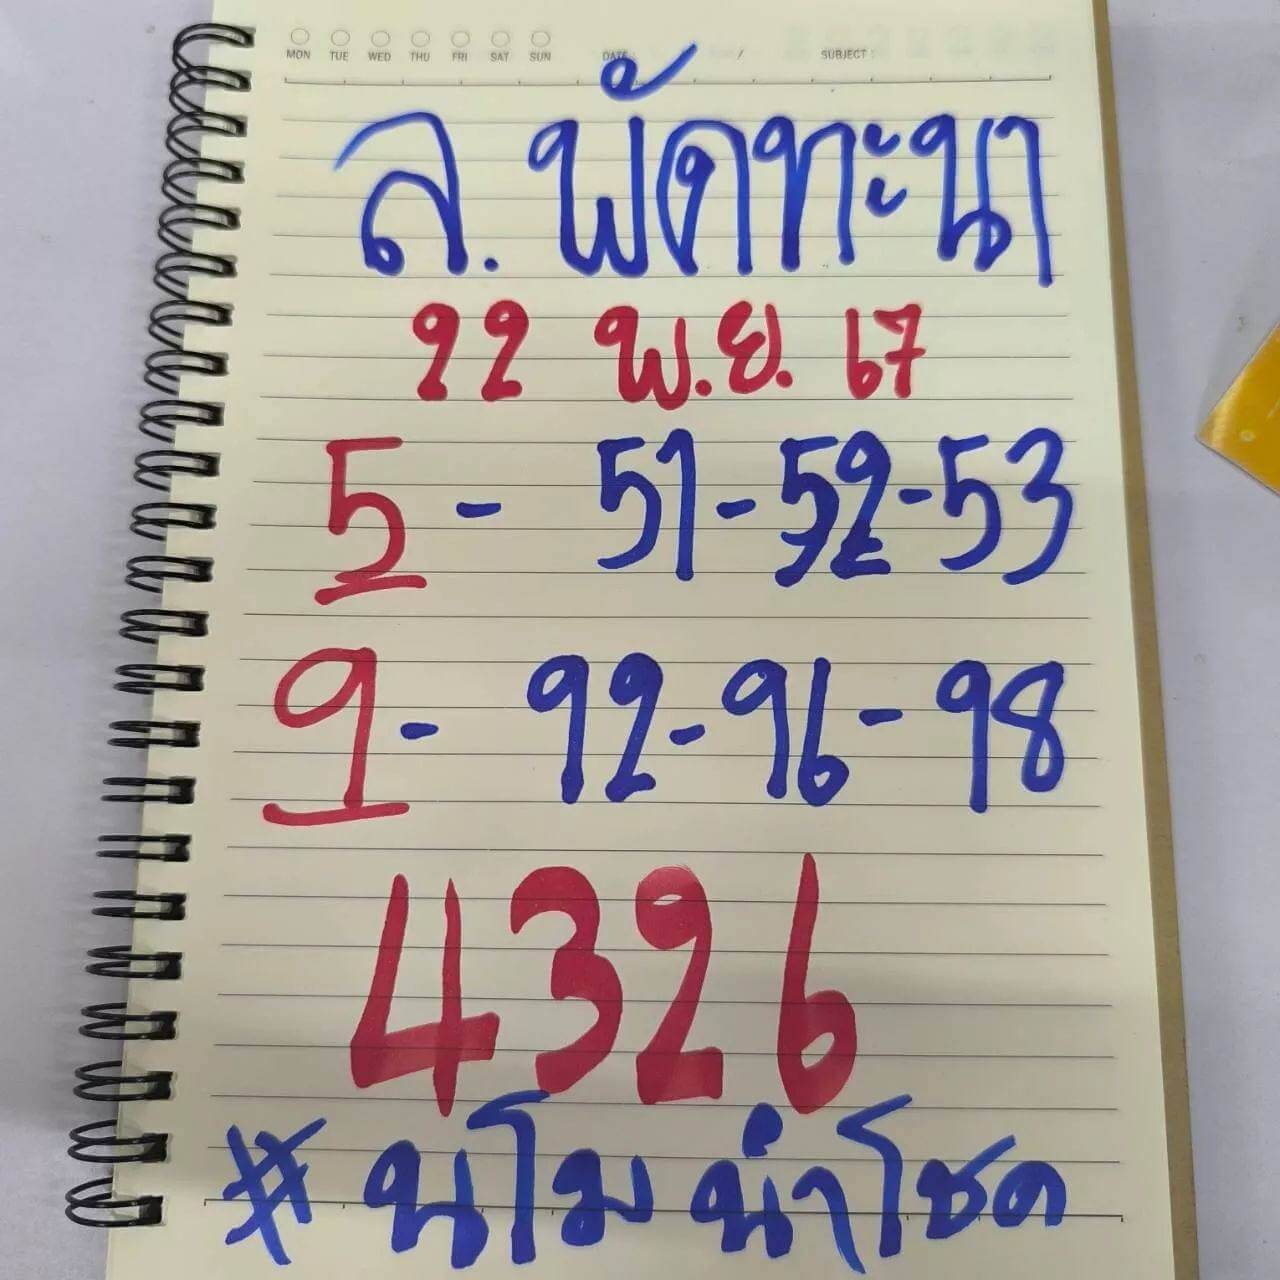 MON TUE WED THU FRI SAT SUN DATE: / SUBJECT :
ล. พัดทะนา
22 พ.ย. 67
5 - 51 - 52 - 53
9 - 92 - 96 - 98
4326
# นโม นำโชค